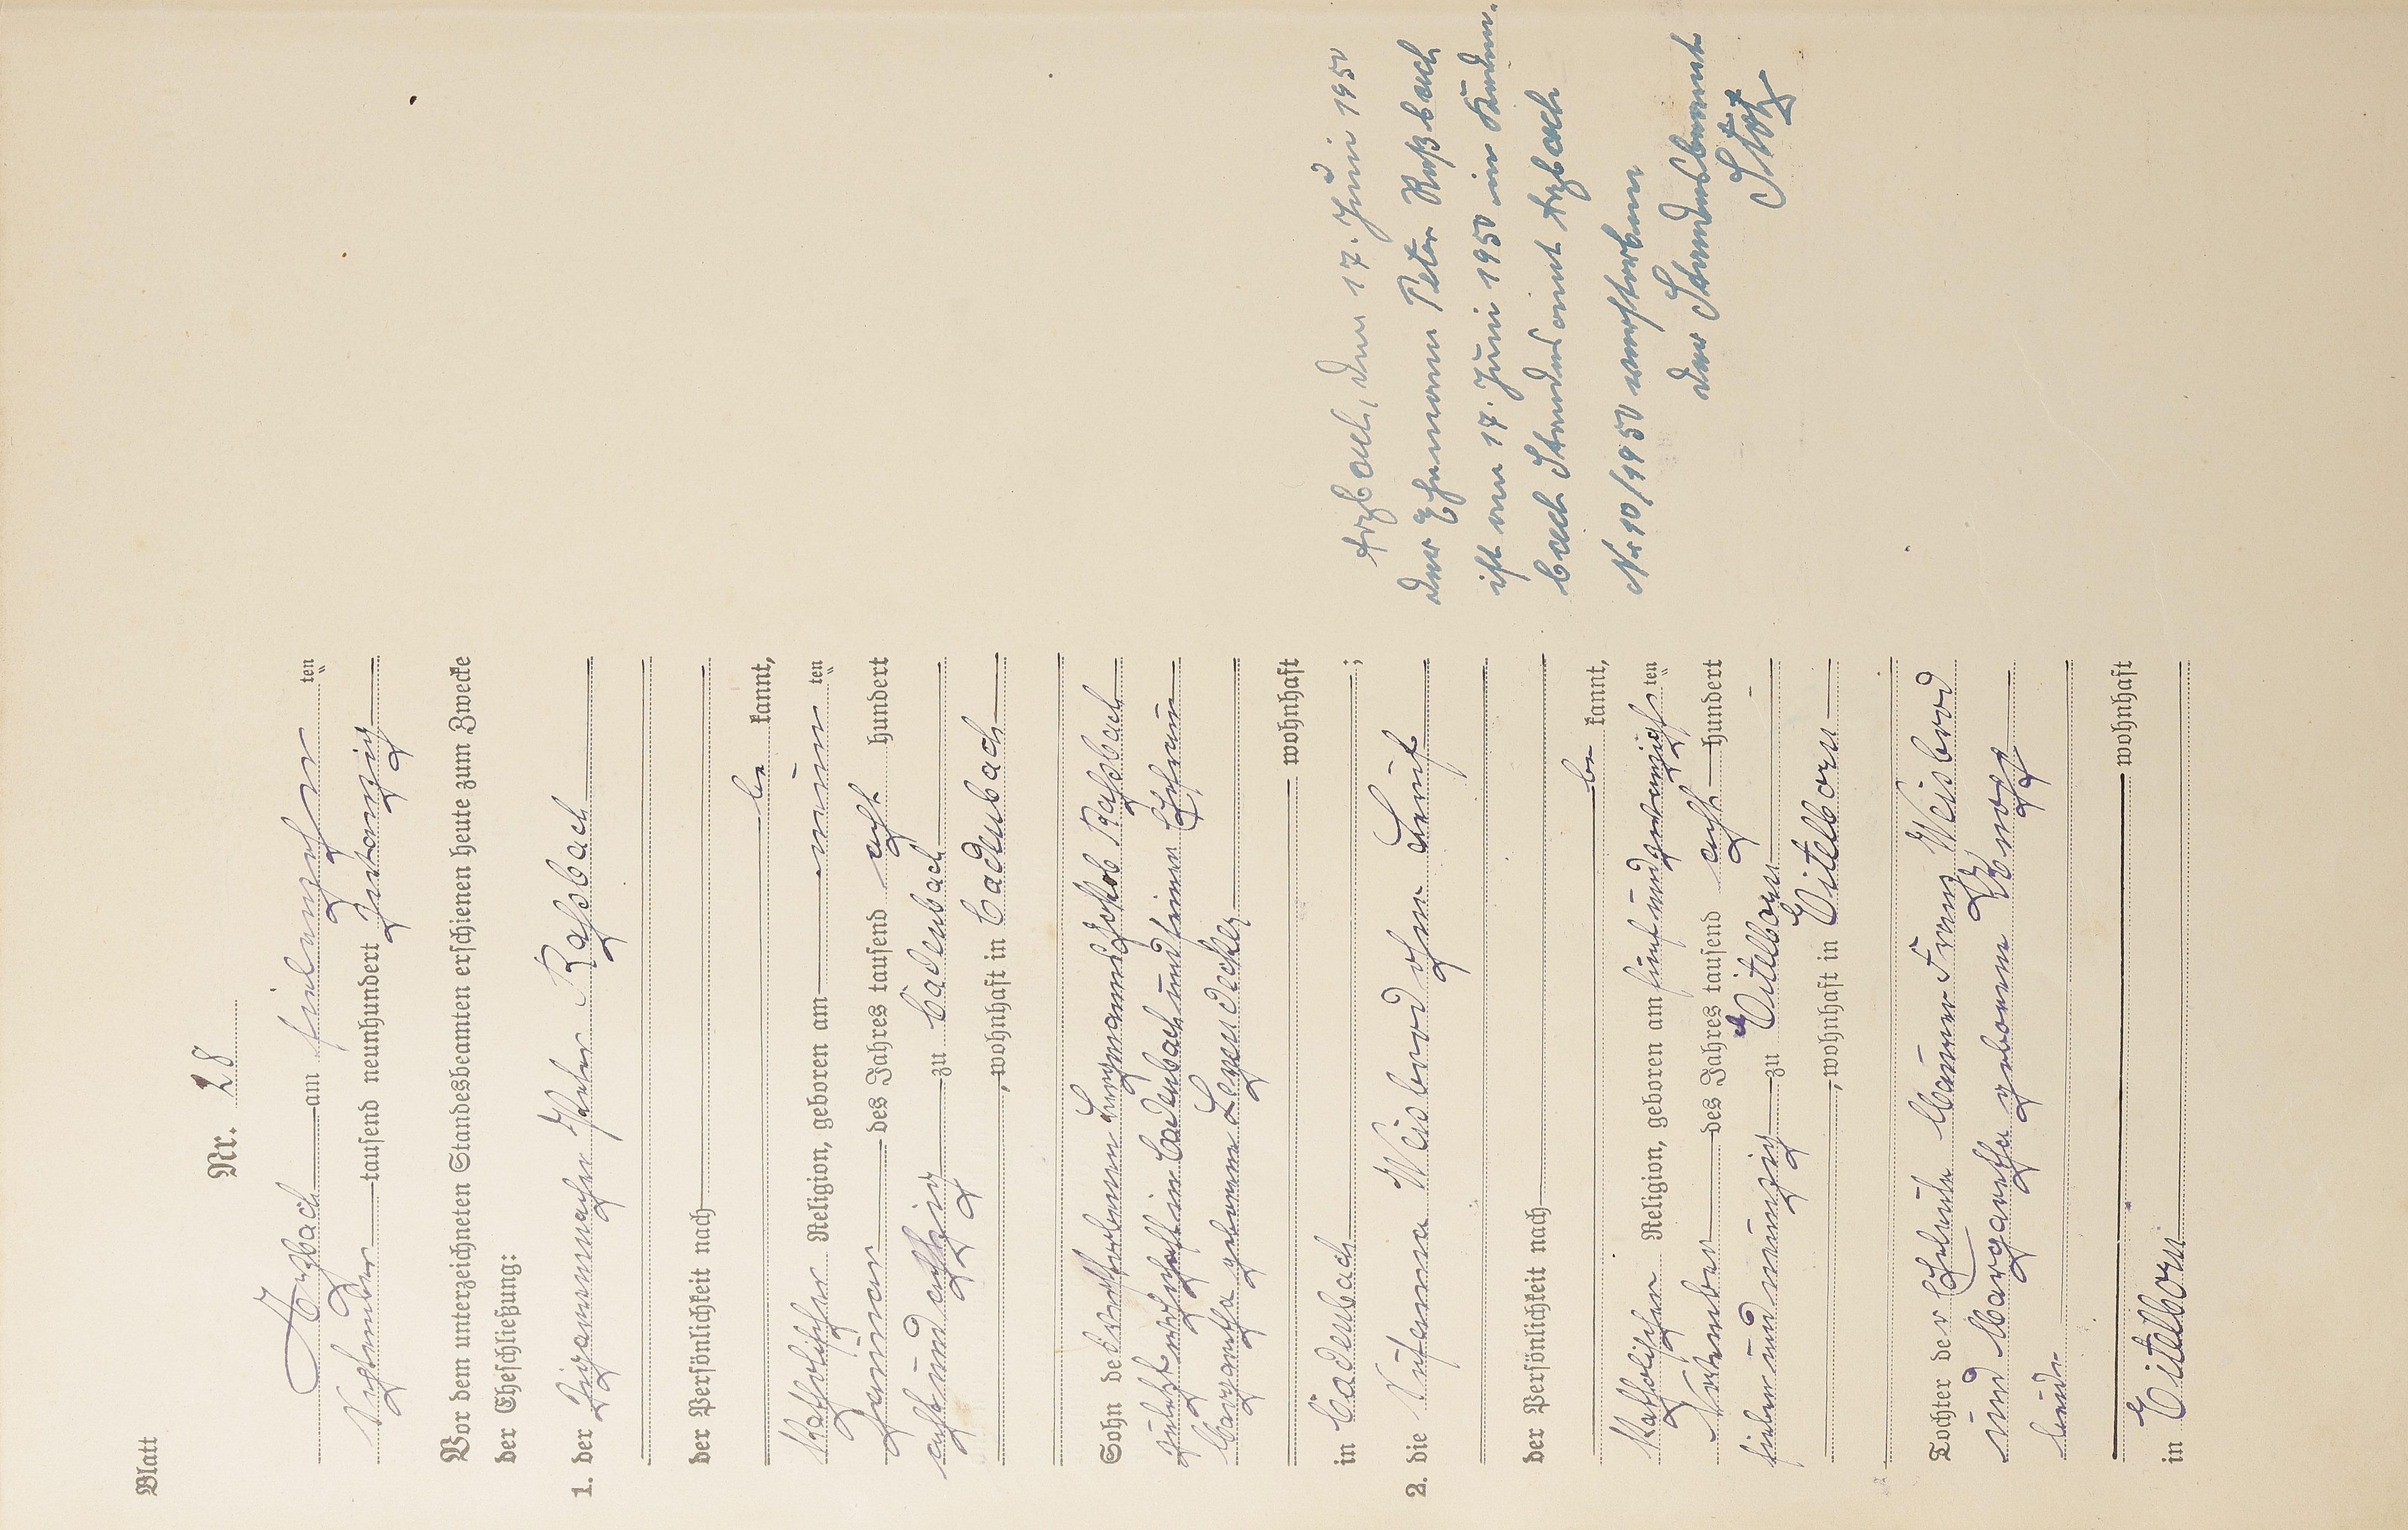 Blatt
Nr. 28
Arzbach am siebenzehn ten
September tausend neunhundert zwanzig
Vor dem unterzeichneten Standesbeamten erschienen heute zum Zwecke
der Eheschließung:
1. der Zigarrenmacher Peter Roßbach
der Persönlichkeit nach
be kannt,
katholischer Religion, geboren am neun ten
Januar des Jahres tausend acht hundert
achtundachtzig zu Cadenbach
, wohnhaft in Cadenbach
Sohn des verstorbenen Bergmanns Jakob Roßbach
zuletzt wohnhaft in Cadenbach und seiner Ehefrau
Margaretha geborene Legendecker
wohnhaft
in Cadenbach ;
2. die Susanna Weisbrod ohne Beruf
der Persönlichkeit nach
be kannt,
katholischer Religion, geboren am fünfundzwanzigsten
des Jahres tausend acht hundert
siebenundneunzig zu Eitelborn
, wohnhaft in Eitelborn
Tochter der Eheleute Maurer Franz Weisbrod
und Margaretha geborene
beide
wohnhaft
in Eitelborn
Arzbach, den 17. Juni 1950
Der Ehemann Peter Roßbach
ist am 17. Juni 1950 in Kaden-
bach Standesamt Arzbach
Nr 10/1950 verstorben
Der Standesbeamte
Stotz